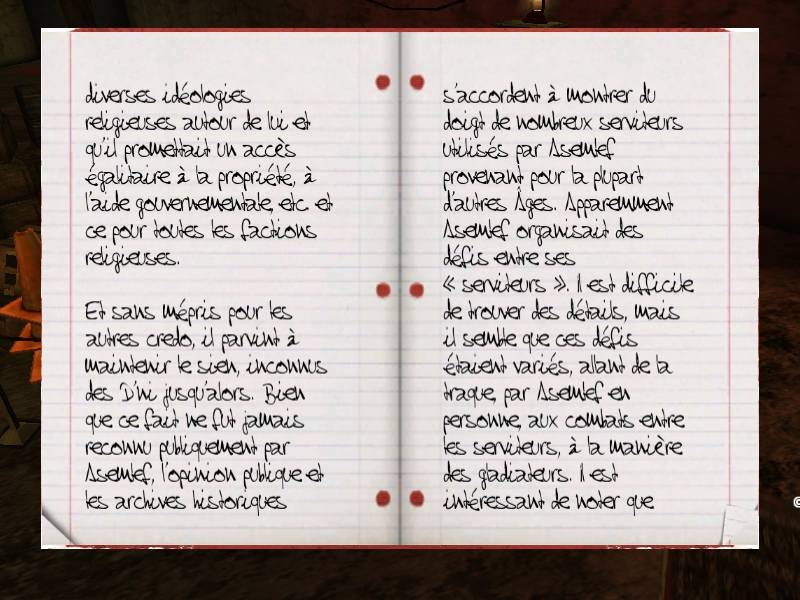 diverses idéologies
religieuses autour de lui et
qu'il promettait un accès
égalitaire à la propriété, à
l'aide gouvernementale, etc. et
ce pour toutes les factions
religieuses.
Et sans mépris pour les
autres credo, il parvint à
maintenir le sien, inconnus
des D'ni jusqu'alors. Bien
que ce fait ne fut jamais
reconnu publiquement par
Asemlef, l'opinion publique et
les archives historiques
s'accordent à montrer du
doigt de nombreux serviteurs
utilisés par Asemlef
provenant pour la plupart
d'autres Âges. Apparemment
Asemlef organisait des
défis entre ses
« serviteurs ». Il est difficile
de trouver des détails, mais
il semble que ces défis
étaient variés, allant de la
traque, par Asemlef en
personne, aux combats entre
les serviteurs, à la manière
des gladiateurs. Il est
intéressant de noter que
©